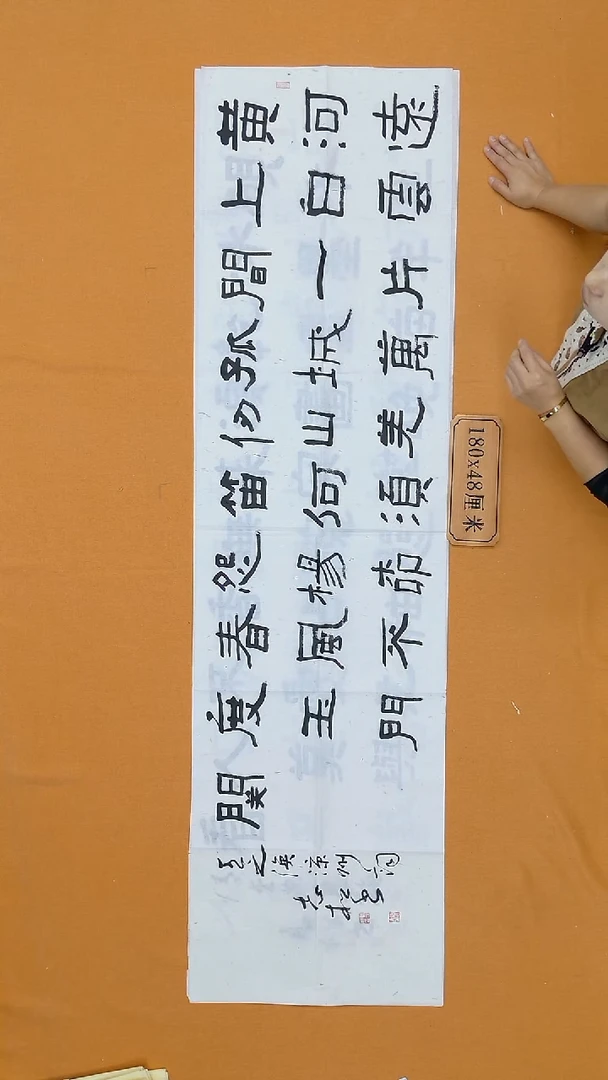 黄河遠
上白雲
間一片
孤城萬
仞山羌
笛何須
怨楊柳
春風不
度玉門
關
王之渙涼州詞
180x48厘米